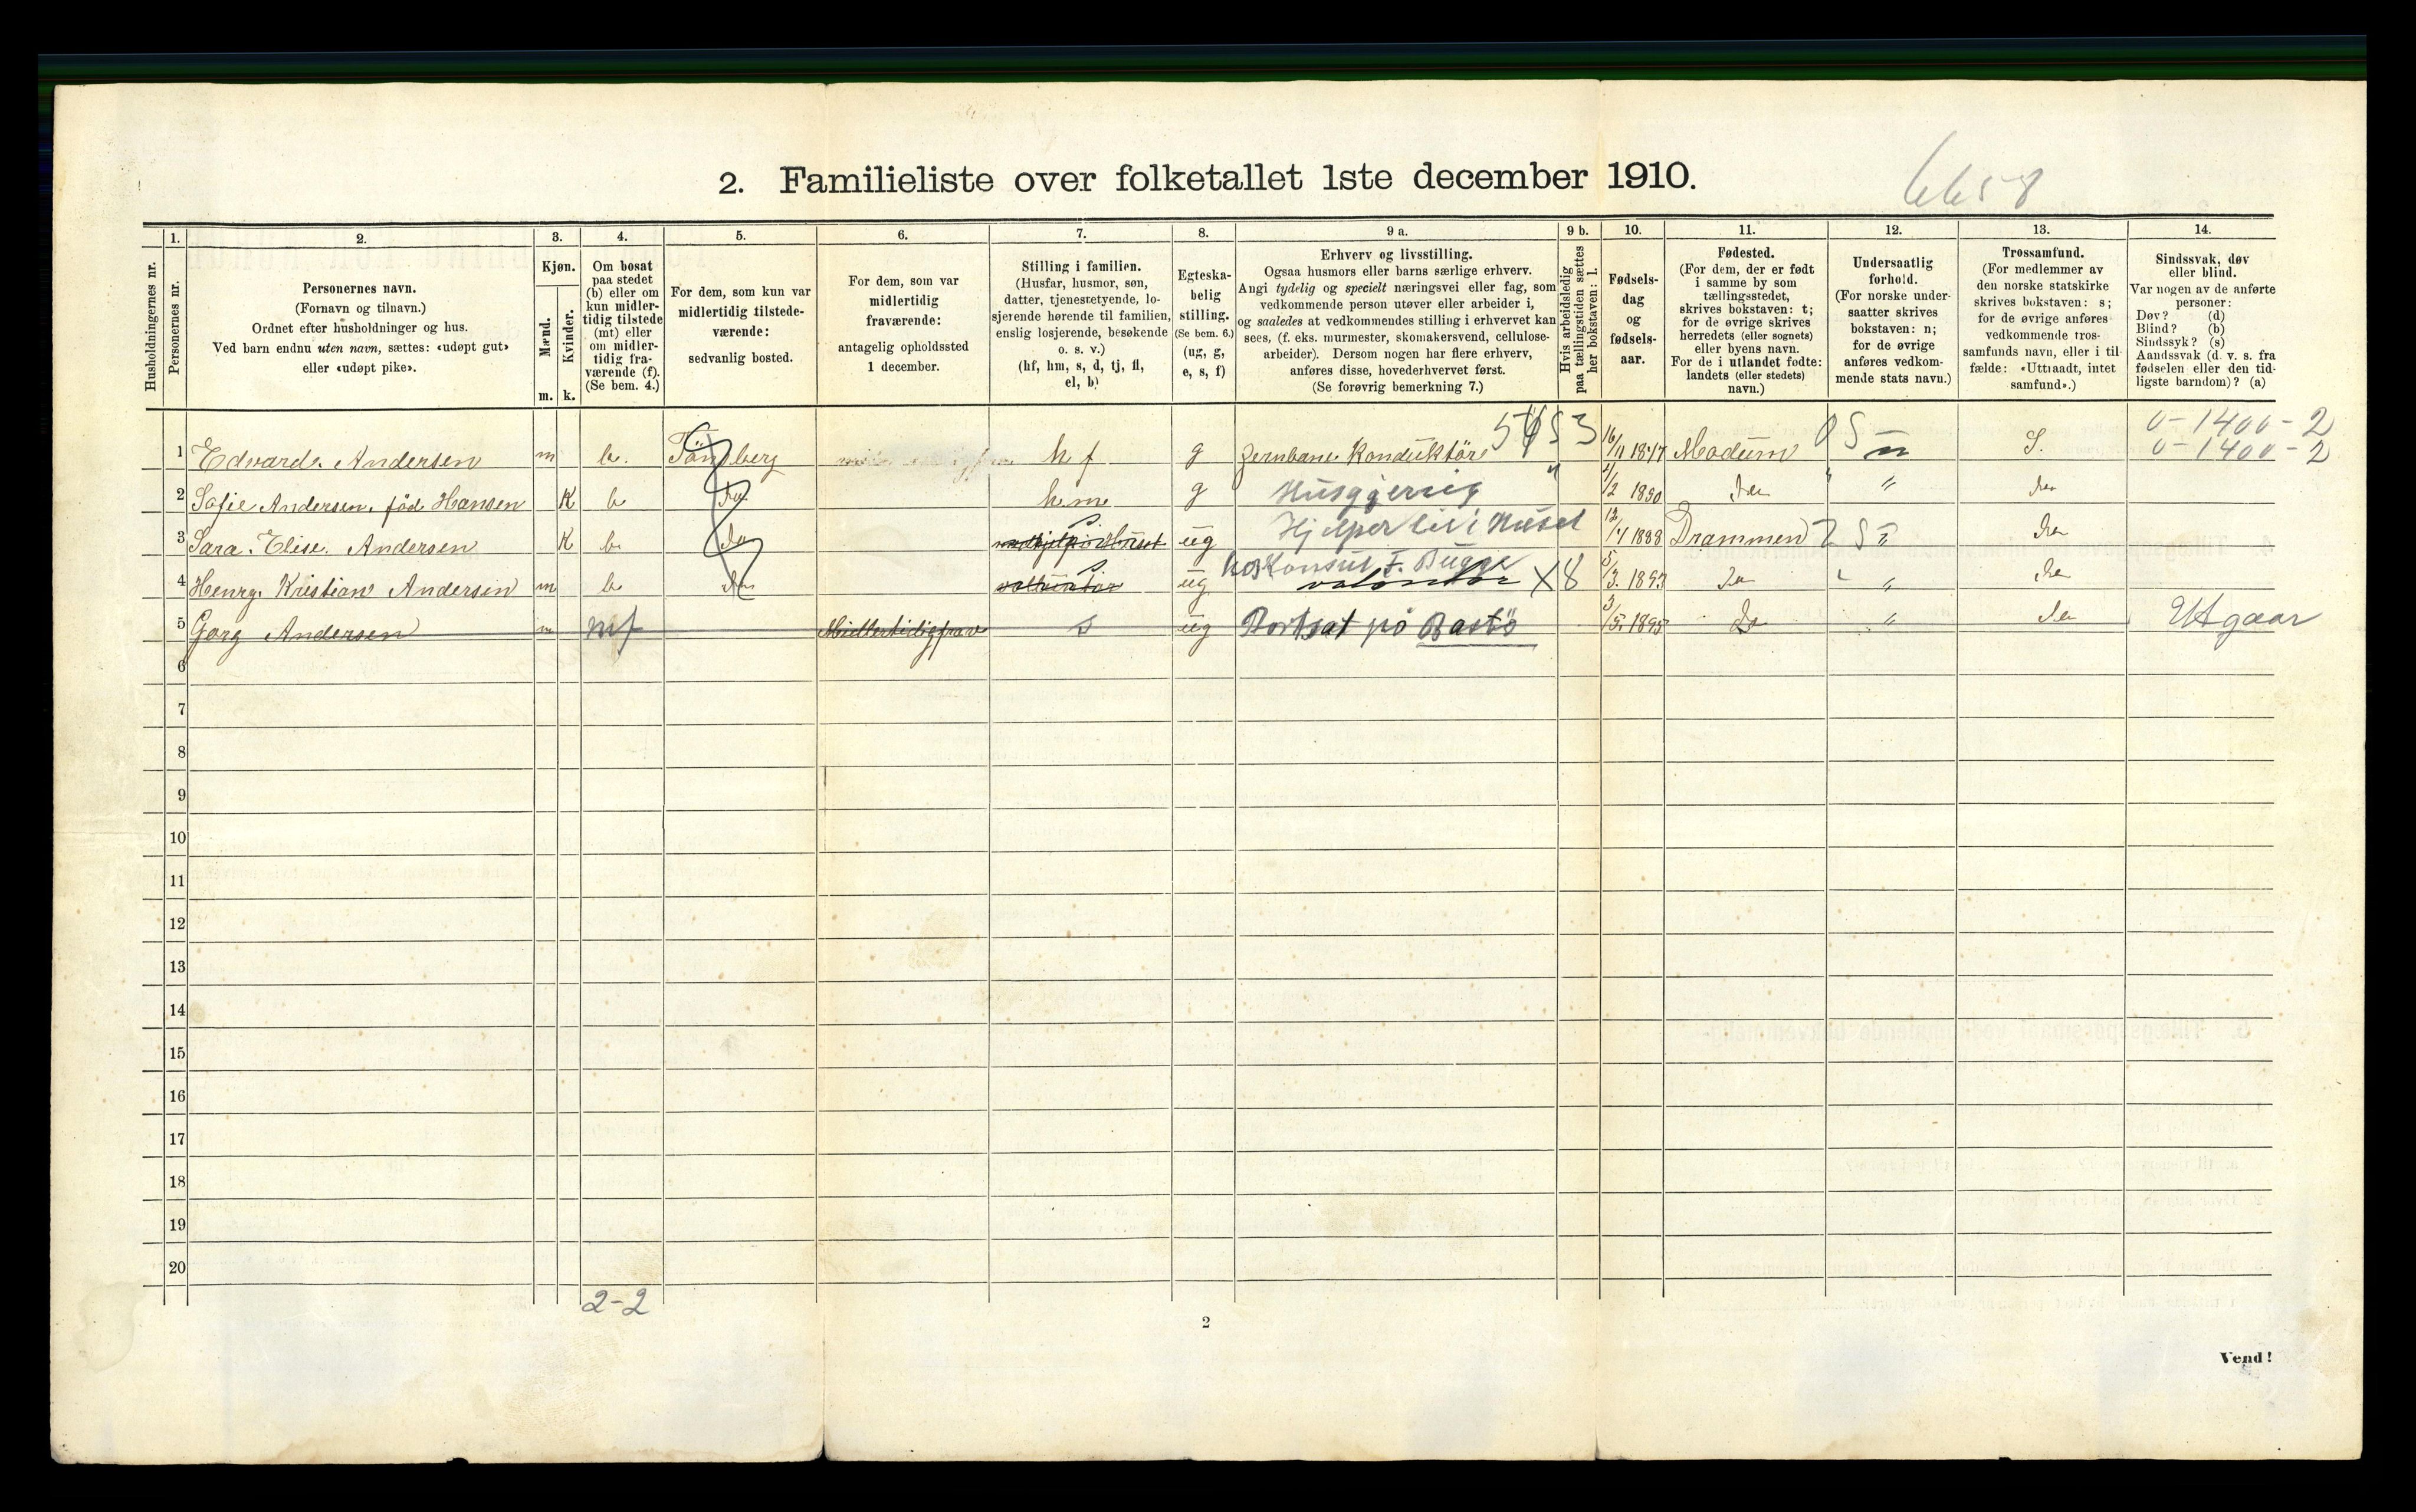 2. Familieliste over folketallet 1ste december 1910.
6658
Husholdningernes nr.
1.
Personernes nr.
2.
Personernes navn.
(Fornavn og tilnavn.)
Ordnet efter husholdninger og hus.
Ved barn endnu uten navn, sættes: «udøpt gut»
eller «udøpt pike».
3.
Kjøn.
Mænd.
Kvinder.
m. k.
4.
Om bosat
paa stedet
(b) eller om
kun midler-
tidig tilstede
(mt) eller
om midler-
tidig fra-
værende (f).
(Se bem. 4.)
5.
For dem, som kun var
midlertidig tilstede-
værende:
sedvanlig bosted.
6.
For dem, som var
midlertidig
fraværende:
antagelig opholdssted
1 december.
7.
Stilling i familien.
(Husfar, husmor, søn,
datter, tjenestetyende, lo-
sjerende hørende til familien,
enslig losjerende, besøkende
o. s. v.)
(hf, hm, s, d, tj, fl,
el, b)
8.
Egteska-
belig
stilling.
(Se bem. 6.)
(ug, g,
e, s, f)
9 a.
Erhverv og livsstilling.
Ogsaa husmors eller barns særlige erhverv.
Angi tydelig og specielt næringsvei eller fag, som
vedkommende person utøver eller arbeider i,
og saaledes at vedkommendes stilling i erhvervet kan
sees, (f. eks. murmester, skomakersvend, cellulose-
arbeider). Dersom nogen har flere erhverv,
anføres disse, hovederhvervet først.
(Se forøvrig bemerkning 7.)
9 b.
Hvis arbeidsledig
paa tællingstiden sættes
her bokstaven: l.
10.
Fødsels-
dag
og
fødsels-
aar.
11.
Fødested.
(For dem, der er født
i samme by som
tællingsstedet,
skrives bokstaven: t;
for de øvrige skrives
herredets (eller sognets)
eller byens navn.
For de i utlandet fødte:
landets (eller stedets)
navn.)
12.
Undersaatlig
forhold.
(For norske under-
saatter skrives
bokstaven: n;
for de øvrige
anføres vedkom-
mende stats navn.)
13.
Trossamfund.
(For medlemmer av
den norske statskirke
skrives bokstaven: s;
for de øvrige anføres
vedkommende tros-
samfunds navn, eller i til-
fælde: «Uttraadt, intet
samfund».)
14.
Sindssvak, døv
eller blind.
Var nogen av de anførte
personer:
Døv? (d)
Blind? (b)
Sindssyk? (s)
Aandssvak (d. v. s. fra
fødselen eller den tid-
ligste barndom)? (a)
0-1400-2
1 Edvard. Andersen m b. Tönsberg h f g Jernbane Konduktör 16/11 1847 Modum n S. 0-1400-2
2 Sofie Andersen. föd. Hansen K b do h m g Husgjerning 4/2 1850 do " do
3 Sara. Elise. Andersen K b do ug Hjelper til i Huset 12/4 1888 Drammen " do
hos Konsul F. Bugge
4 Henry. Kristian Andersen m b do s ug volontör X8 5/3. 1893 do " do
5 Gorg Andersen m mf Midlertidig frav s ug Bortsat på Bastö 3/5. 1895 do " do Utgaar
6
7
8
9
10
11
12
13
14
15
16
17
18
19
20
2-2
2
Vend!